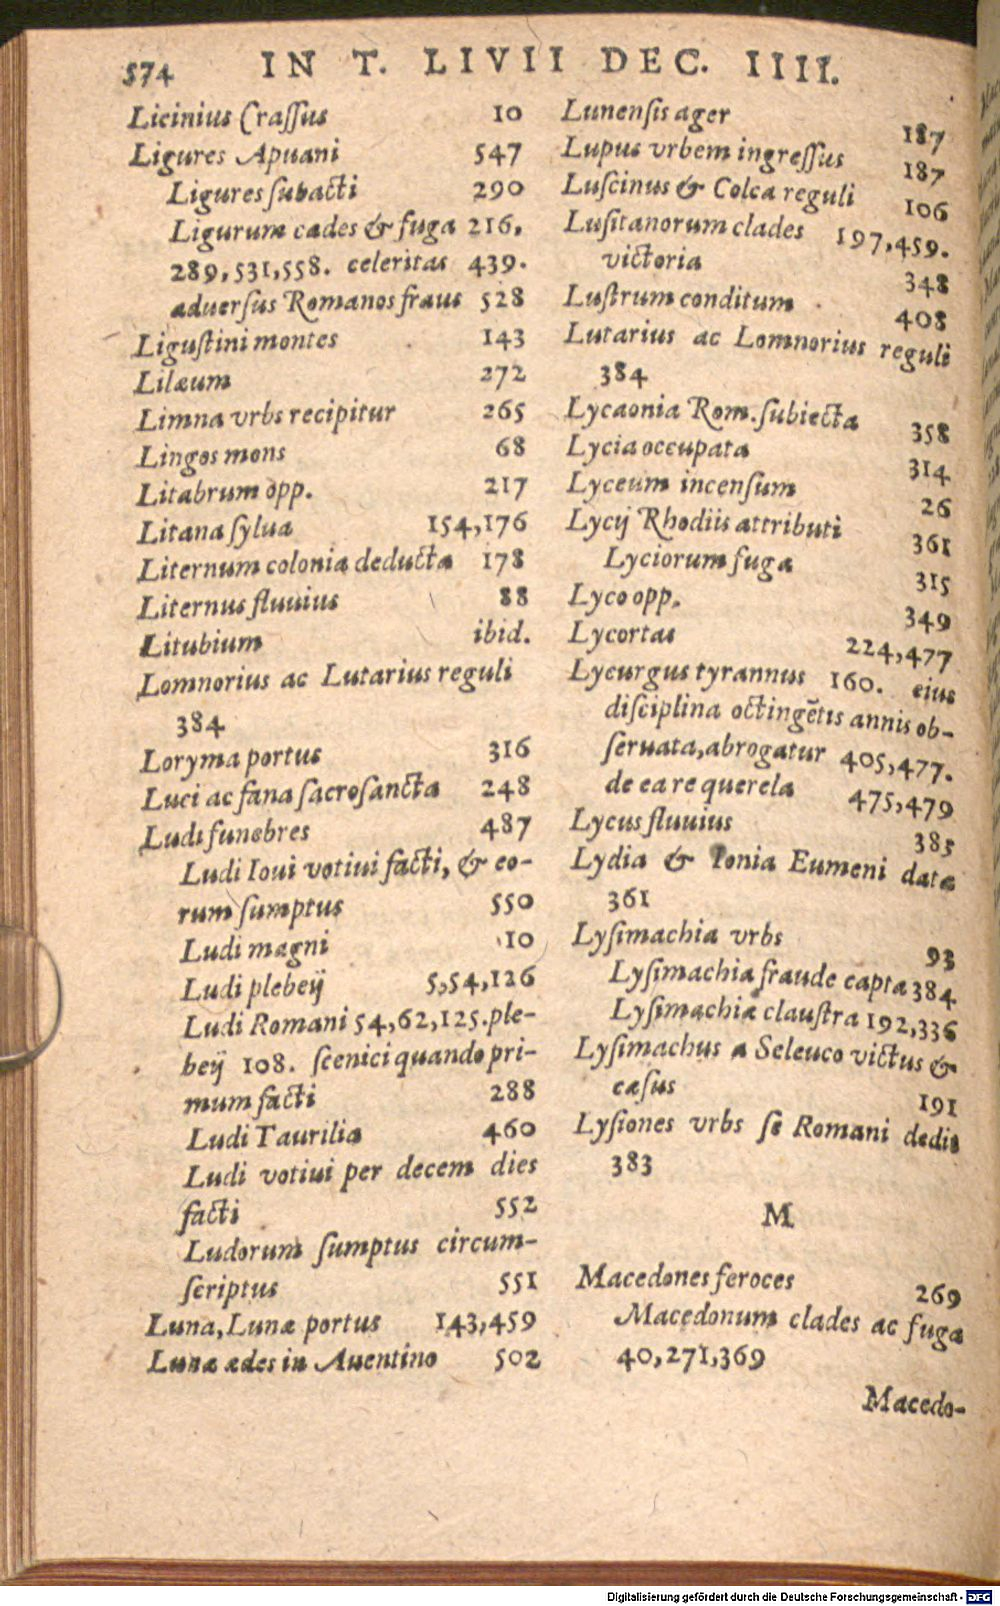 574 IN T. LIVII DEC. IIII.
Licinius Crassus 10
Ligures Apuani 547
Ligures subacti 290
Ligurum cædes & fuga 216,
289,531,558. celeritas 439.
aduersus Romanos fraus 528
Ligustini montes 143
Lilæum 272
Limna vrbs recipitur 265
Lingos mons 68
Litabrum opp. 217
Litana sylua 154,176
Liternum colonia deducta 178
Liternus fluuius 88
Litubium ibid.
Lomnorius ac Lutarius reguli
384
Loryma portus 316
Luci ac fana sacrosancta 248
Ludi funebres 487
Ludi Ioui votiui facti, & eo-
rum sumptus 550
Ludi magni 10
Ludi plebeij 5,54,126
Ludi Romani 54,62,125.ple-
beij 108. scenici quando pri-
mum facti 288
Ludi Taurilia 460
Ludi votiui per decem dies
facti 552
Ludorum sumptus circum-
scriptus 551
Luna, Lunæ portus 143,459
Lunæ ædes in Auentino 502
Lunensis ager 187
Lupus vrbem ingressus 187
Luscinus & Colca reguli 106
Lusitanorum clades 197,459.
victoria 348
Lustrum conditum 408
Lutarius ac Lomnorius reguli
384
Lycaonia Rom. subiecta 358
Lycia occupata 314
Lyceum incensum 26
Lycij Rhodiis attributi 361
Lyciorum fuga 315
Lyco opp. 349
Lycortas 224,477
Lycurgus tyrannus 160. eius
disciplina octingētis annis ob-
seruata, abrogatur 405,477.
de ea re querela 475,479
Lycus fluuius 385
Lydia & Ionia Eumeni datæ
361
Lysimachia vrbs 93
Lysimachia fraude capta 384
Lysimachiæ claustra 192,336
Lysimachus a Seleuco victus &
cæsus 191
Lysiones vrbs se Romani dedit
383
M
Macedones feroces 269
Macedonum clades ac fuga
40,271,369
Macedo-
Digitalisierung gefördert durch die Deutsche Forschungsgemeinschaft - DFG